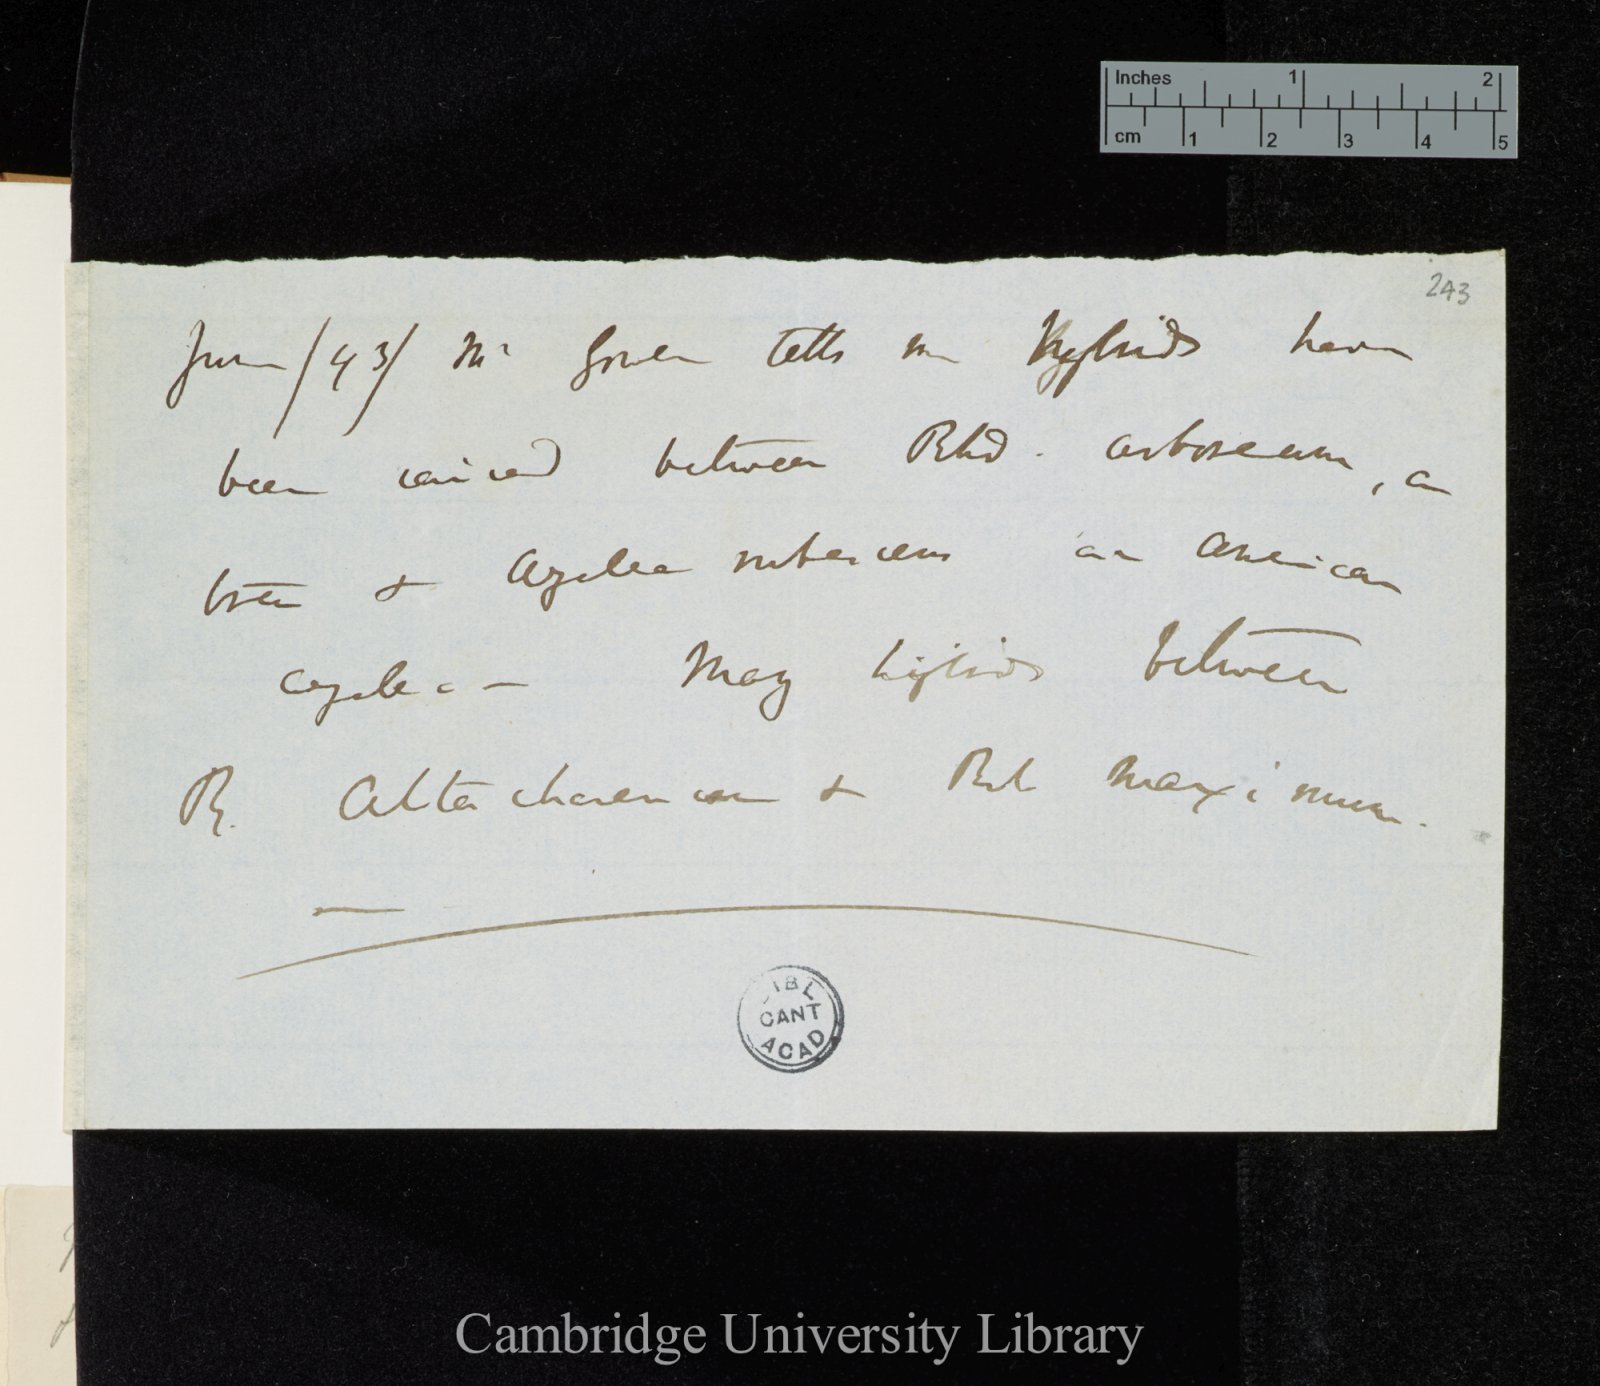 Inches 1 2
cm 1 2 3 4 5
243
June /43/ Mr Gowen tells me Hybrids have
been raised between Rhd. arboreum, an
& Azalea an American
azalea — Many hybrids between
R. & Rh maximum.
IBL
CANT
ACAD
Cambridge University Library